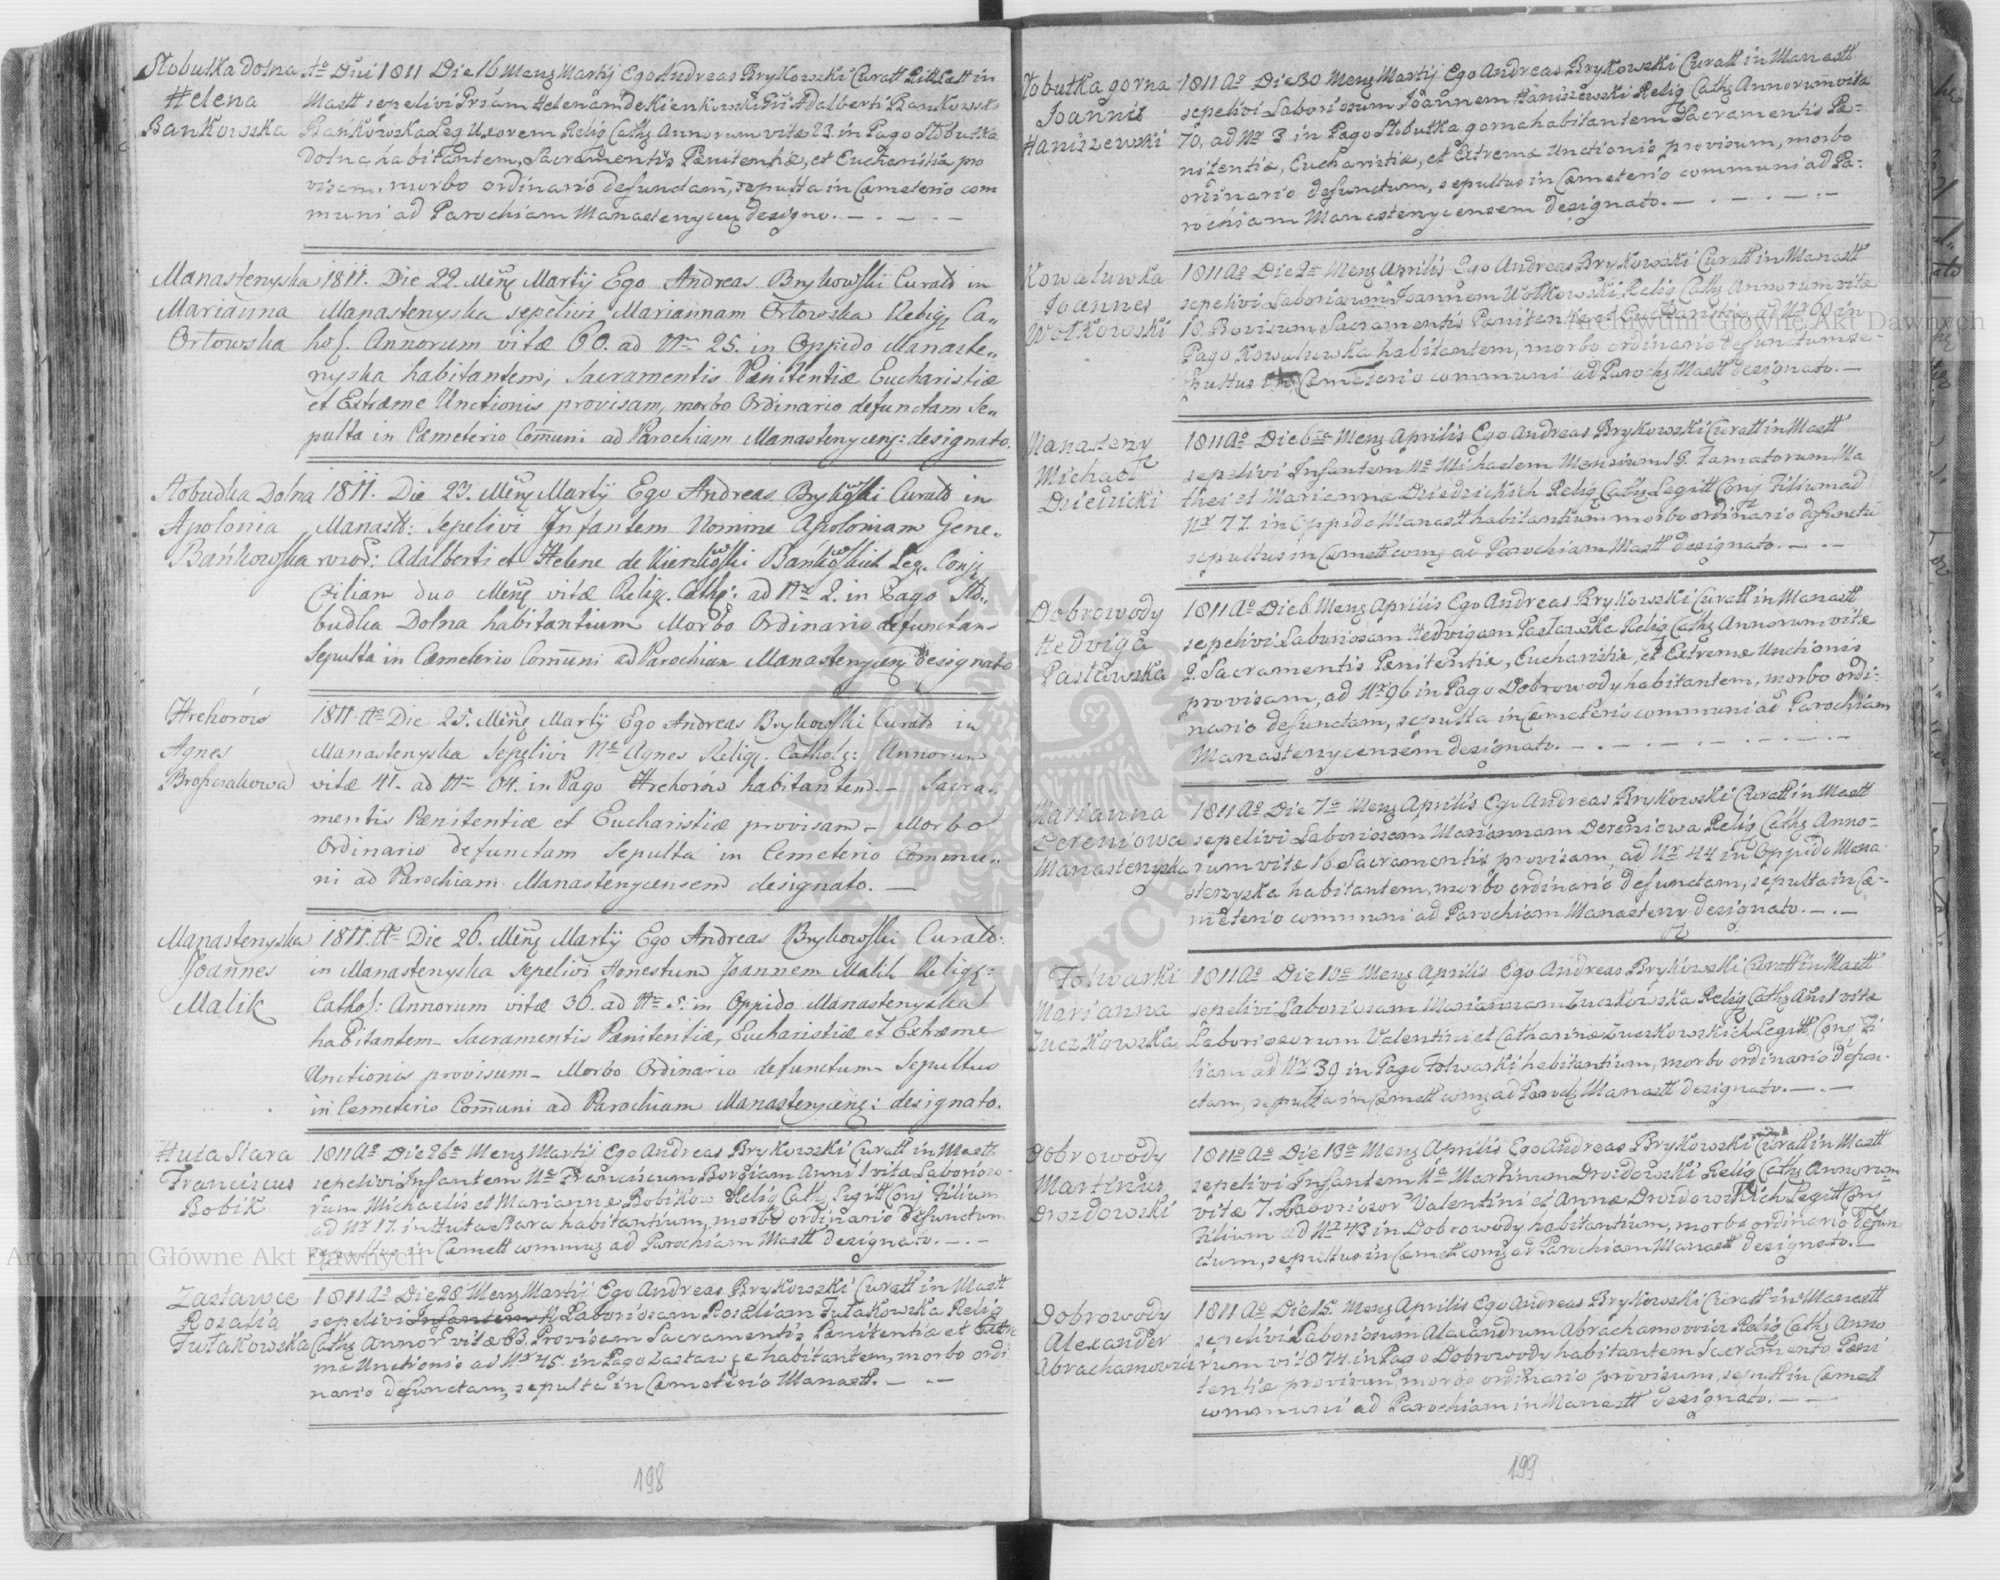 Słobutka dolna
Helena
Bankowska
Aº Dñi 1811 Die 16 Meng Martij Ego Andreas Brykowski Curatt in
Mastt sepelivi Helenam de Kienkowski Adalberti Bankowsk
Bankowska Leg Uxorem Relig Cathg Annorum vitæ 23. in Pago Słobutka
dolna habitantem, Sacramentis Pænitentiæ, et Eucharistia pro
visam, morbo ordinario defunctam, sepulta in Cæmeterio com
muni ad Parochiam Manastenycen designo. — . — —
Manastenyska
Marianna
Orłowska
1811. Die 22. Meng Martij Ego Andreas Brykowski Curatt in
Manastenyska sepelivi Mariannam Orłowska Religg Ca„
thol. Annorum vitæ 60. ad Nrm 25. in Oppido Manaste„
nyska habitantem, Sacramentis Pænitentiæ Eucharistiæ
et Extræme Unctionis provisam, morbo Ordinario defunctam se„
pulta in Cæmeterio Comuni ad Parochiam Manastenyceng: designato.
Słobudka Dolna
Apolonia
Bańkowska
1811. Die 23. Meng Martij Ego Andreas Brykowski Curatt in
Manastt: sepelivi Infantem Nomine Apoloniam Gene„
Adalberti et Helene de Bańkowskich Leg. Conj
Filiam duo Meng vitæ Relig. Cathg: ad Nrm 2. in Pago Sło„
budka Dolna habitantium Morbo Ordinario defunctam
Sepulta in Cæmeterio Comuni ad Parochiam Manastenyceng designato
Hrehorów
Agnes
1811. Aº Die 25. Meng Martij Ego Andreas Brykowski Curatt in
Manastenyska Sepelivi Nè Agnes Religg. Catholg: Annorum
vitæ 41. ad Nrm 64. in Pago Hrehorów habitantem. — Sacra„
mentis Pænitentiæ et Eucharistiæ provisam — Morbo
Ordinario defunctam Sepulta in Cemeterio Commu„
ni ad Parochiam Manastenycensem designato. —
Manastenyska
Joannes
Malik
1811. Aº Die 26. Meng Martij Ego Andreas Brykowski Curatt:
in Manastenyska sepelivi Honestum Joannem Malik Religg:
Cathol: Annorum vitæ 36. ad Nrm 5. in Oppido Manastenyska
habitantem — Sacramentis Pænitentiæ, Eucharistiæ et Extræme
Unctionis provisum — Morbo Ordinario defunctum — Sepultus
in Cemeterio Comuni ad Parochiam Manastenyceng: designato.
Huta Stara
Franciscus
Bobik
1811 Aº Die 26ª Meng Martij Ego Andreas Brykowski Curatt in Mastt
sepelivi Infantem Nè Franciscum Borgiam Anni 1 vita Laborioso-
rum Michaelis et Marianne Bobikow Relig Cathg Legitt Conj Filium
ad Nr 17. in Huta Stara habitantium, morbo ordinario defunctum
sepultus in Cæmett commug ad Parochiam Mastt designato. — . —
Zastawce
Rosalia
Tułakowska
1811 Aº Die 28 Meng Martij Ego Andreas Brykowski Curatt in Mastt
sepelivi Infantem N Laboriosam Rosaliam Tułakowska Relig
Cathg Annor vitæ 63. Provisam Sacramentis Pænitentiæ et Extre
ma Unctionis ad Nr 45. in Pago Zastawce habitantem, morbo ordi
nario defunctam, sepulta in Cæmeterio Manastt. — —
198
Słobutka gorna
Joannes
Haniszewski
1811 Aº Die 30 Meng Martij Ego Andreas Brykowski Curatt in Manastt
sepelivi Laboriosum Joannem Haniszewski Relig Cathg Annorum vita
70, ad Nr 3 in Pago Słobutka gorna habitantem Sacramentis Pæ-
nitentiæ, Eucharistiæ, et Extremæ Unctionis provisum, morbo
ordinario defunctum, sepultus in Cæmeterio communi ad Pa-
rochiam Manastenycensem designato. — . — . — . —
Kowaluwka
Joannes
Wołkowski
1811 Aº Die 2ª Meng Aprilis Ego Andreas Brykowski Curatt in Manastt
sepelivi Laboriosum Joannem Wołkowski, Relig Cathg Annorum vitæ
18. Provisum Sacramentis Pænitentiæ et Eucharistiæ ad Nr 60 in
Pago Kowaluwka habitantem, morbo ordinario defunctum se-
pultus in Cæmeterio communi ad Parochg Mastt designato. —
Manasteny
Michael
Dziedzicki
1811 Aº Die 6ª Meng Aprilis Ego Andreas Brykowski Curatt in Mastt
sepelivi Infantem Nè Michaelem Mensium 13. Famatorum Ma
thei et Marianna Dziedzickich Relig Cathg Legitt Conj Filium ad
Nr 77. in Oppido Manastt habitantium morbo ordinario defunctū
sepultus in Cæmett comg ad Parochiam Mastt designato. — . —
Dobrowody
Hedviga
Pasławska
1811 Aº Die 6 Meng Aprilis Ego Andreas Brykowski Curatt in Manastt
sepelivi Laboriosam Hedvigam Pasławska Relig Cathg Annorum vitæ
Sacramentis Pænitentiæ, Eucharistiæ, et Extremæ Unctionis
provisam, ad Nr 96 in Pago Dobrowody habitantem, morbo ordi-
nario defunctam, sepulta in Cæmeterio communi ad Parochiam
Manastenycensem designato. — . — . — . —
Marianna
Dereniowa
Manastenyska
1811 Aº Die 7ª Meng Aprilis Ego Andreas Brykowski Curatt in Mastt
sepelivi Laboriosam Mariannam Dereniowa Relig Cathg Anno-
rum vitæ 16 Sacramentis provisam, ad Nr 44 in Oppido Mana
stenyska habitantem, morbo ordinario defunctam, sepulta in Cæ-
meterio communi ad Parochiam Manasteny designato. — . —
Folwarki
Marianna
Zuczkowska
1811 Aº Die 10ª Meng Aprilis Ego Andreas Brykowski Curatt in Mastt
sepelivi Laboriosam Mariannam Zuczkowska Relig Cathg An 1 vitæ
Laboriosorum Valentini et Catharinæ Zuczkowskich Legitt Conj Fi
liam ad Nr 39 in Pago Folwarki habitantium, morbo ordinario defun-
ctam, sepulta in Cæmett comg ad Parochg Manastt designato. — . —
Dobrowody
Martinus
Drozdowski
1811 Aº Die 13ª Meng Aprilis Ego Andreas Brykowski Curatt in Mastt
sepelivi Infantem Nè Martinum Drozdowski Relig Cathg Annorum
vitæ 7. Laboriosor Valentini et Annæ Drozdowskich Legitt Conj
Filium ad Nr 43 in Dobrowody habitantium, morbo ordinario defun
ctum, sepultus in Cæmet comg ad Parochiam Manastt designato. —
Dobrowody
Alexander
Abrachamowicz
1811 Aº Die 15. Meng Aprilis Ego Andreas Brykowski Curatt in Manastt
sepelivi Laboriosum Alexandrum Abrachamowicz Relig Cathg Anno
rum vitæ 74. in Pago Dobrowody habitantem Sacramento Pæni
tentiæ provisum, morbo ordinario provisum, sepult in Cæmet
communi ad Parochiam in Manastt designato. — —
199
Archiwum Główne Akt Dawnych
Archiwum Główne Akt Dawnych